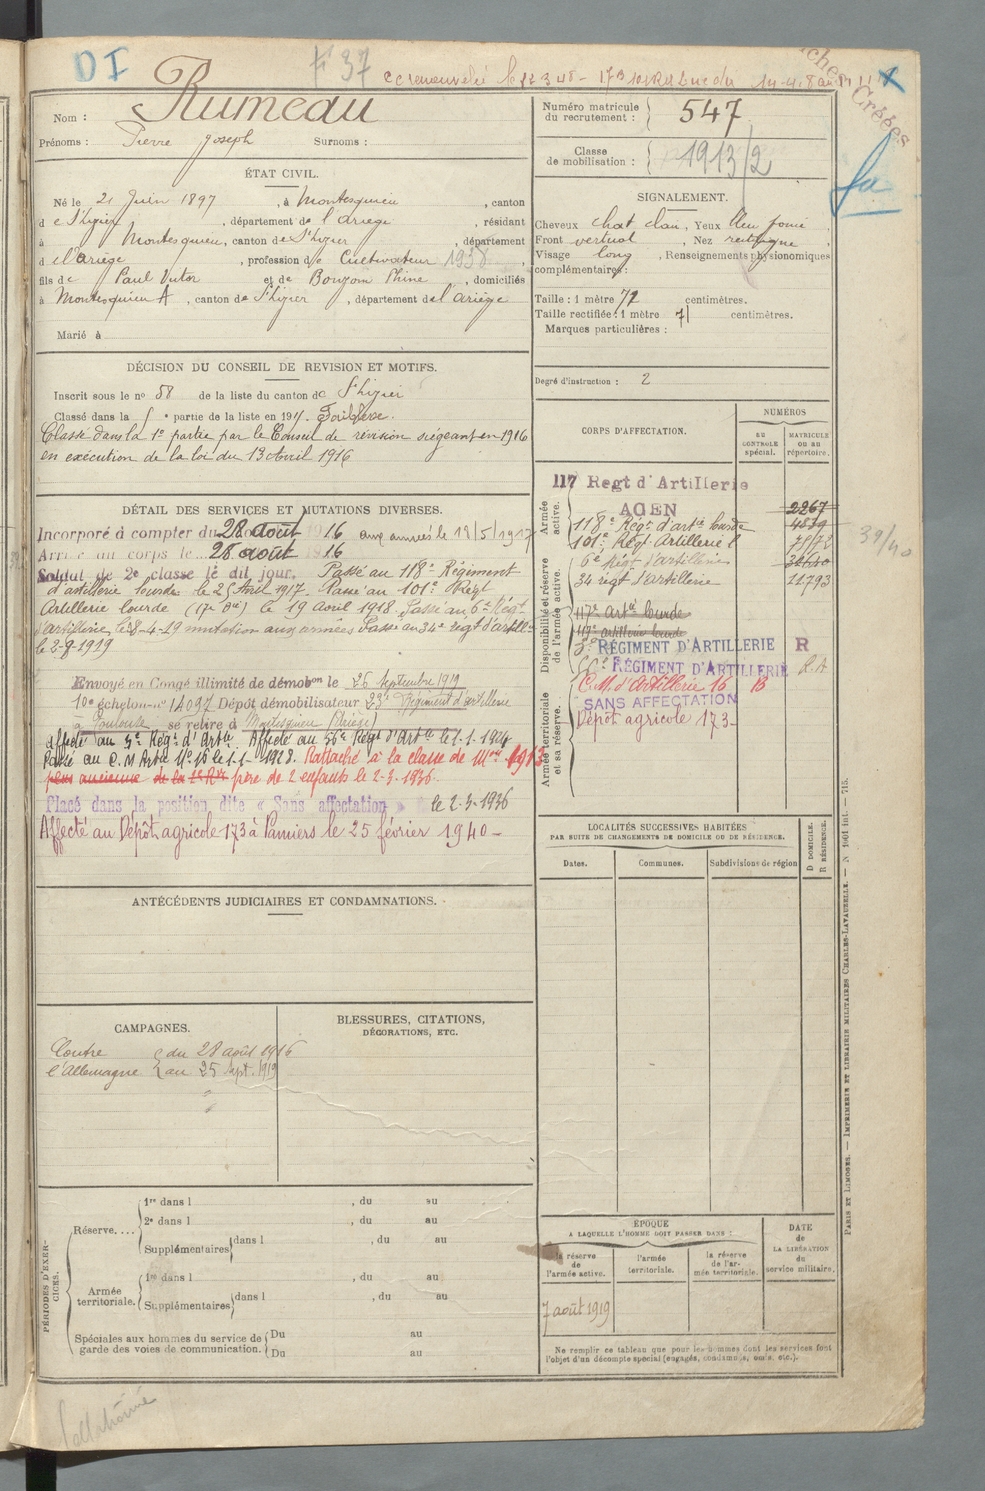 DI
F 37
Nom : Rumeau
Prénoms : Pierre Joseph Surnoms :
ÉTAT CIVIL.
Né le 21 Juin 1897, à Montesquieu, canton
de St Lizier, département de l'Ariège, résidant
à Montesquieu, canton de St Lizier, département
d e l'Ariège, profession de Cultivateur 1938,
fils de Paul Victor et de Bouzom Phine, domiciliés
à Montesquieu A, canton de St Lizier, département de l'Ariège
Marié à
DÉCISION DU CONSEIL DE REVISION ET MOTIFS.
Inscrit sous le no 58 de la liste du canton de St Lizier
Classé dans la 5e partie de la liste en 191 . Faiblesse.
Classé dans la 1e partie par le Conseil de révision siégeant en 1916
en exécution de la loi du 13 Avril 1916
DÉTAIL DES SERVICES ET MUTATIONS DIVERSES.
Incorporé à compter du 28 août 1916 aux armées le 12/5/1917
Arrivé au corps le 28 août 1916
Soldat de 2e classe le dit jour. Passé au 118e Régiment
d'artillerie lourde le 25 Avril 1917. Passé au 101e Régt
Artillerie lourde (17e Bie) le 19 Avril 1918. Passé au 6e Régt
d'artillerie le 8-4-19 mutation aux armées Passé au 34e régt d'artill-
le 2-9-1919
Envoyé en Congé illimité de démobon le 26 Septembre 1919
10e échelon no 1A097 Dépôt démobilisateur 23e Régiment d'artillerie
à Toulouse se retire à Montesquieu (Ariège)
Affecté au 3e Régt d'Artie. Affecté au 56e Régt d'Artie le 1-1-1924
Passé au C.M Artie No 16 le 1-1-1928. Rattaché à la classe de Mon 1913
plus ancienne de la 1e Rve père de 2 enfants le 2-3-1936.
Placé dans la position dite « Sans affectation » le 2-3-1936
Affecté au Dépôt agricole 173 à Pamiers le 25 février 1940-
ANTÉCÉDENTS JUDICIAIRES ET CONDAMNATIONS.
CAMPAGNES.
Contre du 28 août 1916
l'Allemagne au 25 Sept. 1919
BLESSURES, CITATIONS,
DÉCORATIONS, ETC.
PÉRIODES D'EXERCICES.
Réserve....
1re dans l , du au
2e dans l , du au
Supplémentaires dans l , du au
Armée territoriale.
1re dans l , du au
Supplémentaires dans l , du au
Spéciales aux hommes du service de
garde des voies de communication.
Du au
Du au
Numéro matricule
du recrutement : 547
Classe
de mobilisation : 1913/2
SIGNALEMENT.
Cheveux chat clair, Yeux bleu foncé,
Front vertical, Nez rectiligne,
Visage long, Renseignements physionomiques
complémentaires :
Taille : 1 mètre 72 centimètres.
Taille rectifiée : 1 mètre 71 centimètres.
Marques particulières :
Degré d'instruction : 2
CORPS D'AFFECTATION.
NUMÉROS
AU
CONTROLE
spécial.
MATRICULE
OU AU
répertoire.
Armée active.
117 Regt d'Artillerie
AGEN 2267
118e Régt d'artie lourde 4839
101e Régt Artillerie l
Disponibilité et réserve de l'armée active.
6e Régt d'artillerie
34 régt d'artillerie 11793
117e Artie lourde
117e artillerie lourde
3e RÉGIMENT D'ARTILLERIE R
56e RÉGIMENT D'ARTILLERIE R.A
Armée territoriale et sa réserve.
C.M. d'Artillerie 16 B
SANS AFFECTATION
Dépôt agricole 173-
39/40
LOCALITÉS SUCCESSIVES HABITÉES
PAR SUITE DE CHANGEMENTS DE DOMICILE OU DE RÉSIDENCE.
Dates. Communes. Subdivisions de région
D DOMICILE.
R RÉSIDENCE.
ÉPOQUE
A LAQUELLE L'HOMME DOIT PASSER DANS :
la réserve
de
l'armée active.
l'armée
territoriale.
la réserve
de l'ar-
mée territoriale.
DATE
de
LA LIBÉRATION
du
service militaire.
7 août 1919
Ne remplir ce tableau que pour les hommes dont les services font
l'objet d'un décompte spécial (engagés, condamnés, omis, etc.).
PARIS ET LIMOGES. — IMPRIMERIE ET LIBRAIRIE MILITAIRES CHARLES-LAVAUZELLE. — N 1001 int. — 715.